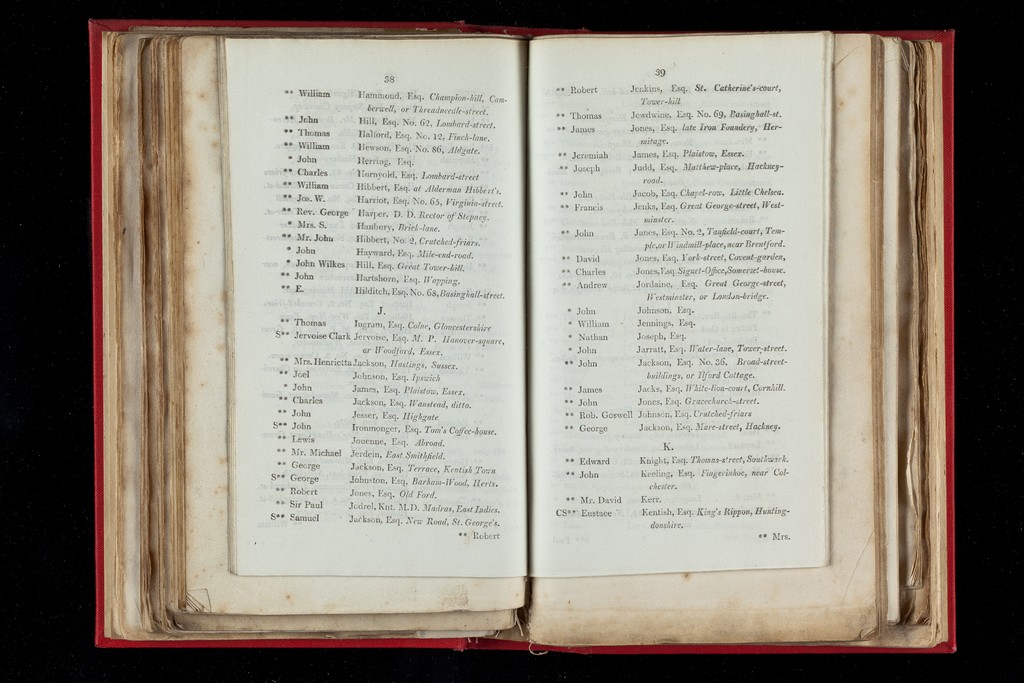 38
** William Hammond, Esq. Champion-hill, Cam-
berwell, or Threadneedle-street.
** John Hill, Esq. No. 62, Lombard-street.
** Thomas Halford, Esq. No. 12, Finch-lane.
** William Hewson, Esq. No. 86, Aldgate.
* John Herring, Esq.
** Charles Hornyold, Esq. Lombard-street
** William Hibbert, Esq. at Alderman Hibbert's.
** Jos. W. Harriot, Esq. No. 65, Virginia-street.
** Rev. George Harper, D. D. Rector of Stepney.
* Mrs. S. Hanbury, Brick-lane.
** Mr. John Hibbert, No. 2, Crutched-friars.
* John Hayward, Esq. Mile-end-road.
* John Wilkes Hill, Esq. Great Tower-hill.
** John Hartshorn, Esq. Wapping.
** E. Hilditch, Esq. No. 68, Basinghall-street.
J.
** Thomas Ingram, Esq. Colne, Gloucestershire
S** Jervoise Clark Jervoise, Esq. M. P. Hanover-square,
or Woodford, Essex.
** Mrs. Henrietta Jackson, Hastings, Sussex.
** Joel Johnson, Esq. Ipswich
* John James, Esq. Plaistow, Essex.
** Charles Jackson, Esq. Wanstead, ditto.
** John Jesser, Esq. Highgate
S** John Ironmonger, Esq. Tom's Coffee-house.
** Lewis Jouenne, Esq. Abroad.
** Mr. Michael Jerdein, East Smithfield.
** George Jackson, Esq. Terrace, Kentish Town
S** George Johnston, Esq. Barham-Wood, Herts.
** Robert Jones, Esq. Old Ford.
** Sir Paul Jodrel, Knt. M.D. Madras, East Indies.
S** Samuel Jackson, Esq. New Road, St. George's.
** Robert
39
** Robert Jenkins, Esq. St. Catherine's-court,
Tower-hill
** Thomas Jewdwine, Esq. No. 69, Basinghall-st.
** James Jones, Esq. late Iron Foundery, Her-
mitage.
** Jeremiah James, Esq. Plaistow, Essex.
** Joseph Judd, Esq. Matthew-place, Hackney-
road.
** John Jacob, Esq. Chapel-row, Little Chelsea.
** Francis Jenks, Esq. Great George-street, West-
minster.
** John Janes, Esq. No. 2, Tanfield-court, Tem-
ple, or Windmill-place, near Brentford.
** David Jones, Esq. York-street, Covent-garden,
** Charles Jones, Esq. Signet-Office, Somerset-house.
** Andrew Jordaine, Esq. Great George-street,
Westminster, or London-bridge.
* John Johnson, Esq.
* William Jennings, Esq.
* Nathan Joseph, Esq.
* John Jarratt, Esq. Water-lane, Tower-street.
** John Jackson, Esq. No. 36, Broad-street-
buildings, or Ilford Cottage.
** James Jacks, Esq. White-lion-court, Cornhill.
** John Jones, Esq. Gracechurch-street.
** Rob. Goswell Johnson, Esq. Crutched-friars
** George Jackson, Esq. Mare-street, Hackney.
K.
** Edward Knight, Esq. Thomas-street, Southwark.
** John Keeling, Esq. Fingerinhoe, near Col-
chester.
** Mr. David Kerr.
CS** Eustace Kentish, Esq. King's Rippon, Hunting-
donshire.
** Mrs.